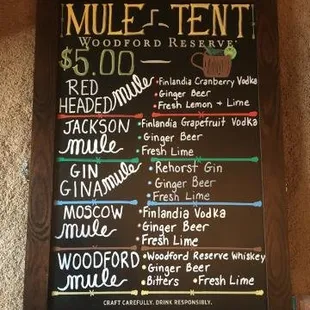 MULE TENT
WOODFORD RESERVE
$5.00
RED HEADED mule
• Finlandia Cranberry Vodka
• Ginger Beer
• Fresh Lemon + Lime
JACKSON mule
• Finlandia Grapefruit Vodka
• Ginger Beer
• Fresh Lime
GIN GINA mule
• Rehorst Gin
• Ginger Beer
• Fresh Lime
MOSCOW mule
• Finlandia Vodka
• Ginger Beer
• Fresh Lime
WOODFORD mule
• Woodford Reserve Whiskey
• Ginger Beer
• Bitters • Fresh Lime
CRAFT CAREFULLY. DRINK RESPONSIBLY.